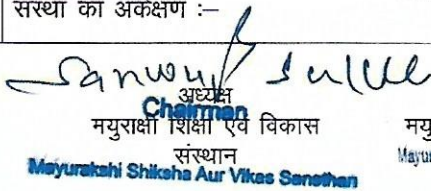 संस्था का अंकेक्षण :–
अध्यक्ष
Chairman
मयुराक्षी शिक्षा एवं विकास
संस्थान
Mayurakshi Shiksha Aur Vikas Sansthan
मयु
Mayur